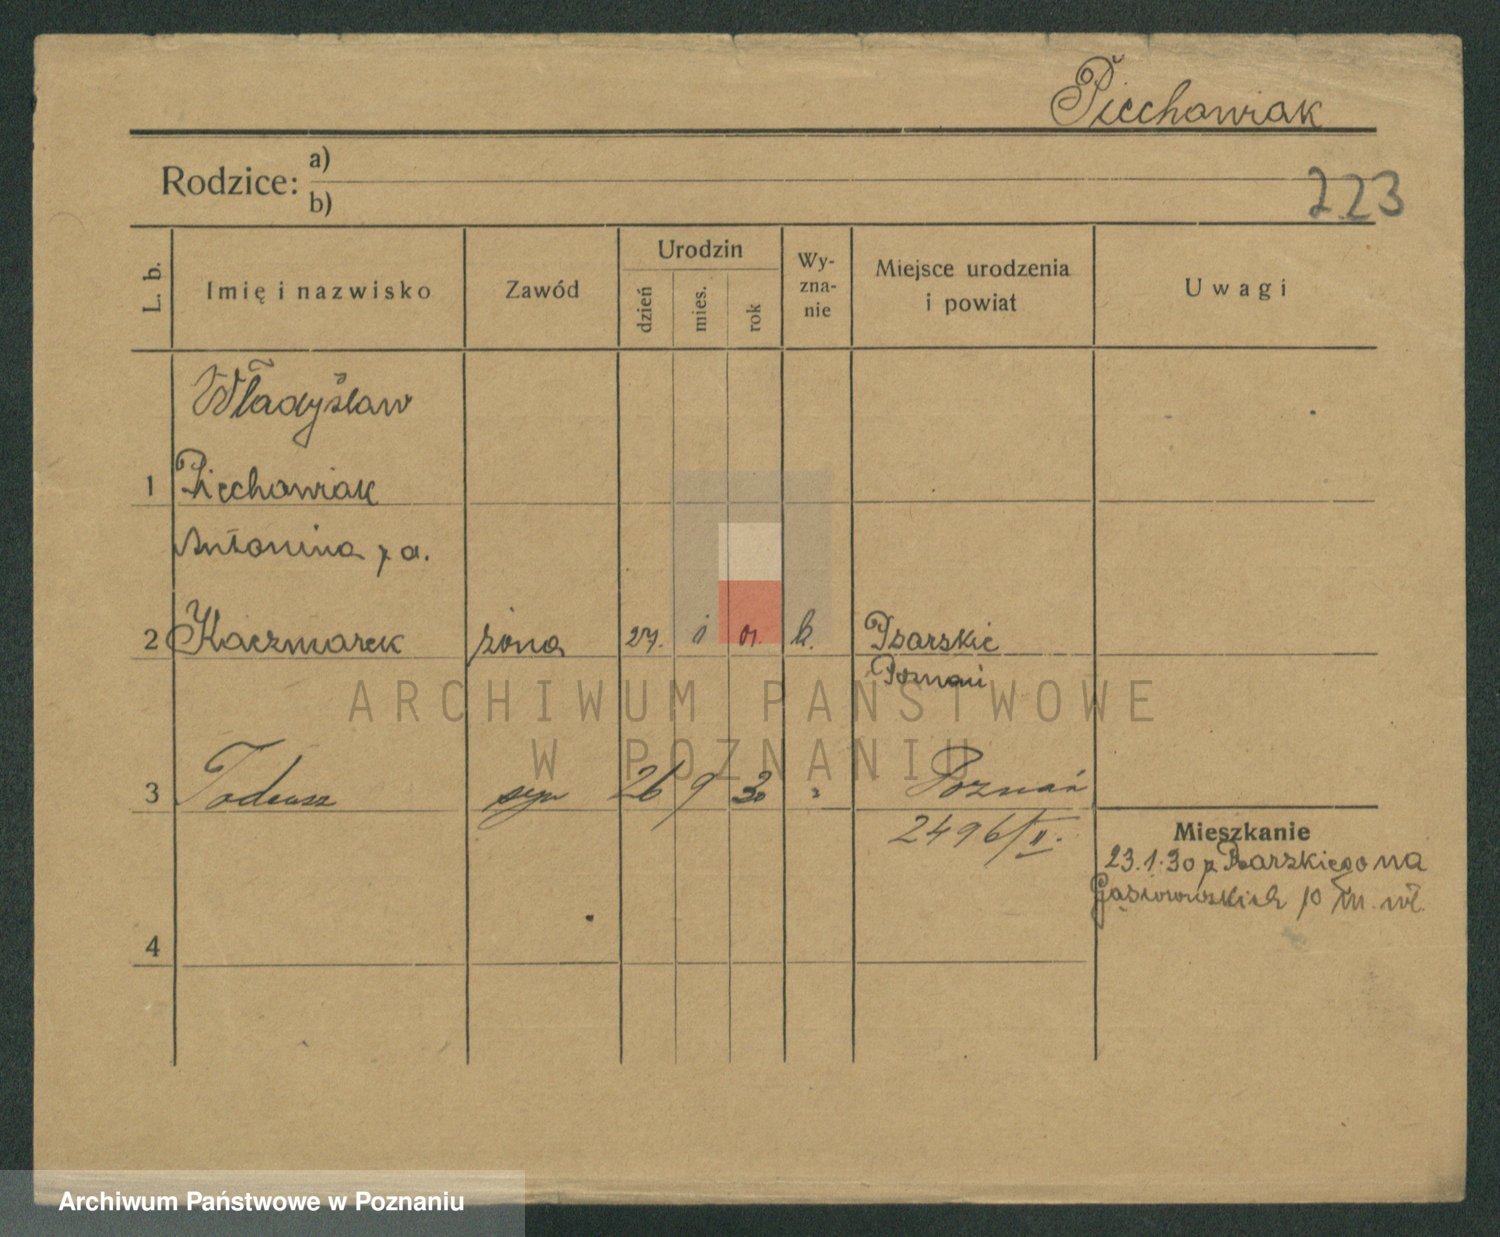 Piechowiak
Rodzice: a)
b)
223
L. b.
Imię i nazwisko
Zawód
Urodzin
dzień
mies.
rok
Wy-
zna-
nie
Miejsce urodzenia
i powiat
Uwagi
Władysław
1 Piechowiak
Antonina z d.
2 Kaczmarek żona 27. i 01. k. Psarskie
Poznań
ARCHIWUM PAŃSTWOWE
W POZNANIU
3 Tadeusz syn 26 9 30 Poznań
2496/II.
Mieszkanie
23.1.30 z Psarskiego na
Gąsiorowskich 10
4
Archiwum Państwowe w Poznaniu